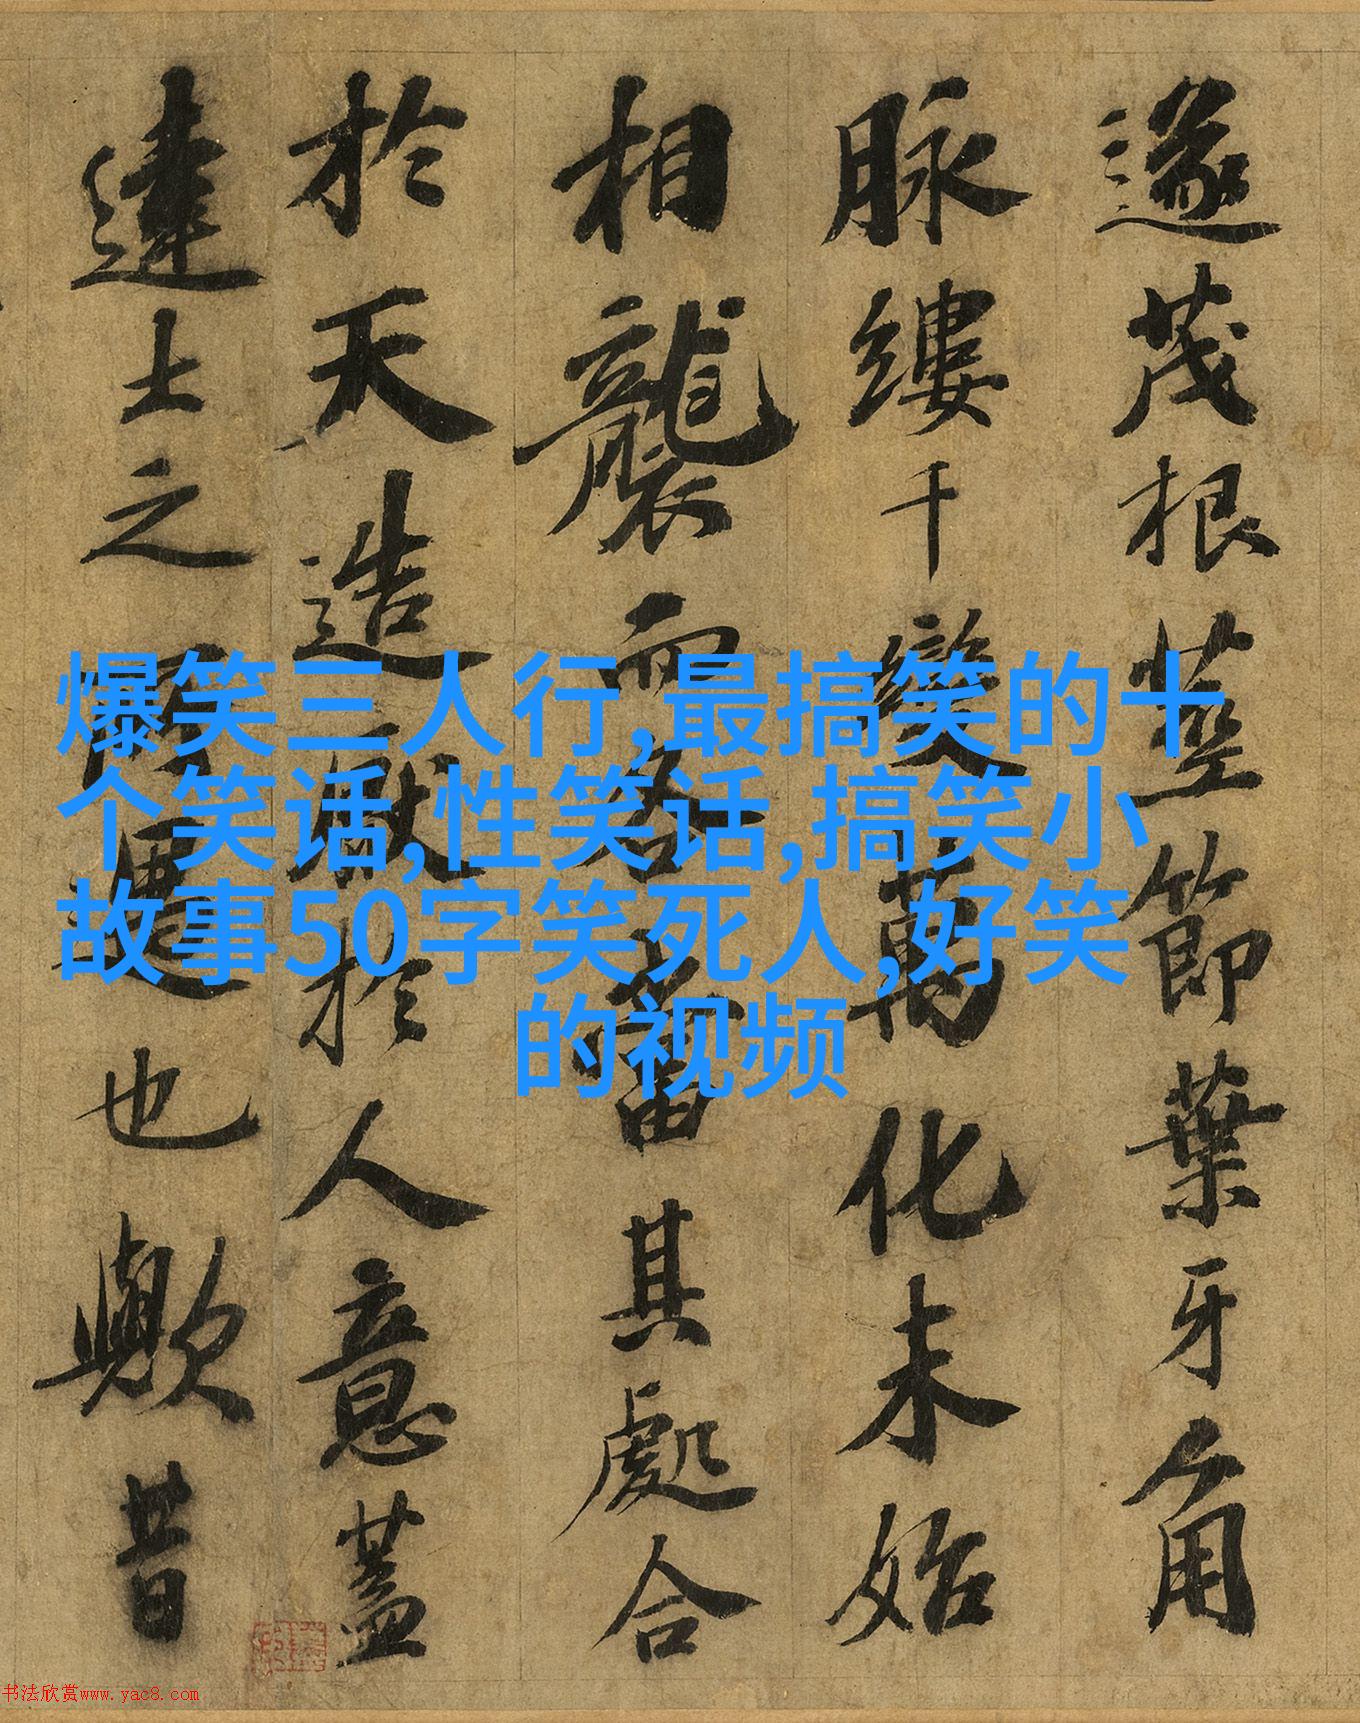 遂茂根莖節葉牙角
脉縷千變萬化未始
相襲而各當其處合
於天造猒於人意蓋
達士之所寓也歟昔
爆笑三人行,最搞笑的十
个笑话,性笑话,搞笑小
故事50字笑死人,好笑
的视频
书法欣赏www.yac8.com